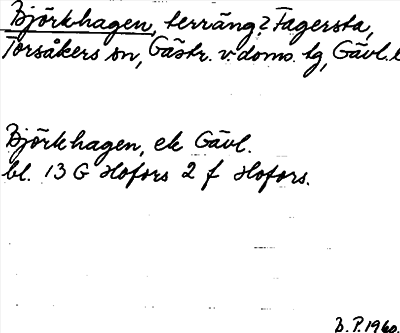 Björkhagen, terräng? Fagersta,
Torsåkers sn, Gästr. v. doms. tg, Gävl. l
Björkhagen, ek Gävl.
bl. 13 G Hofors 2 f Hofors.
B.P. 1960.